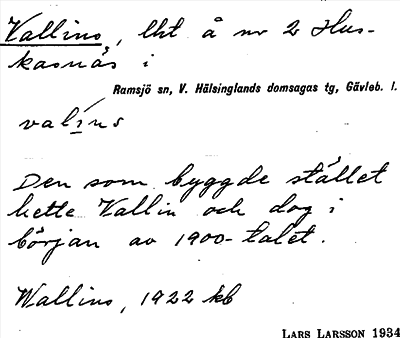 Vallins, lht å nr 2 Hus-
kasnäs i
Ramsjö sn, V. Hälsinglands domsagas tg, Gävleb. l.
valíns
Den som byggde stället
hette Vallin och dog i
början av 1900-talet.
Wallins, 1922 kb
LARS LARSSON 1934